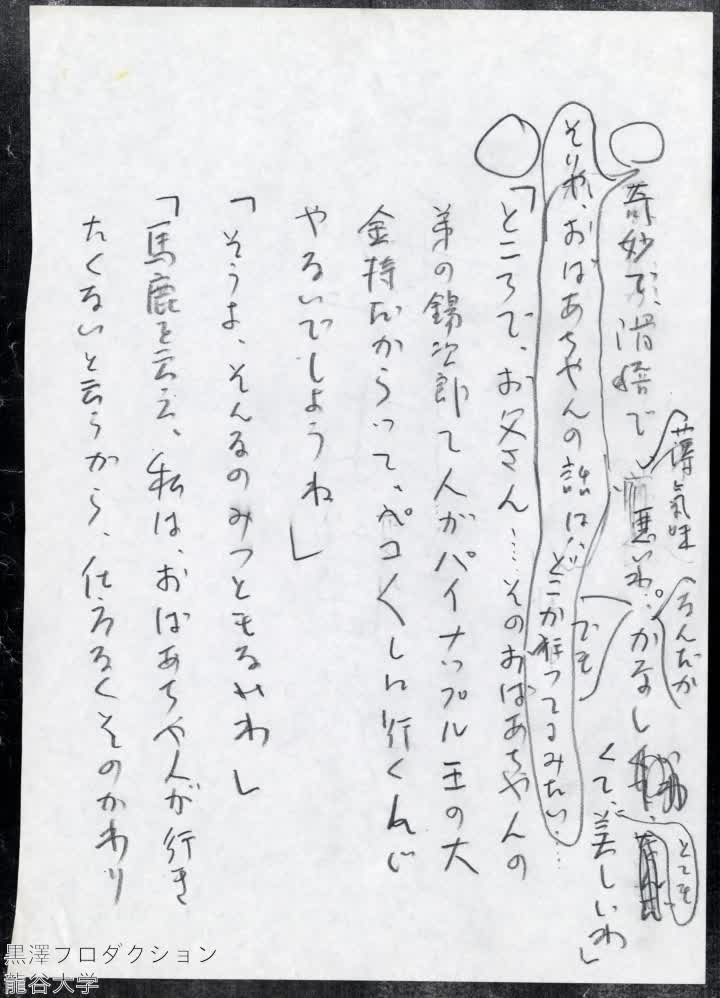 奇妙で、滑稽で、薄気味悪いわ…かなし
くて、美しいわ」
なんだか
でも
とても
そりや、おばあちやんの話は、どこか狂つてるみたい……
「ところで、お父さん……そのおばあちやんの
弟の錫次郎て人がパイナツプル王の大
金持だからつて、ペコ〱しに行くんぢ
やないでしようね」
「そうよ、そんなのみつともないわ」
「馬鹿を云え、私は、おばあちや人が行き
たくないと云うから、仕方なくそのかわり
黒澤プロダクション
龍谷大学